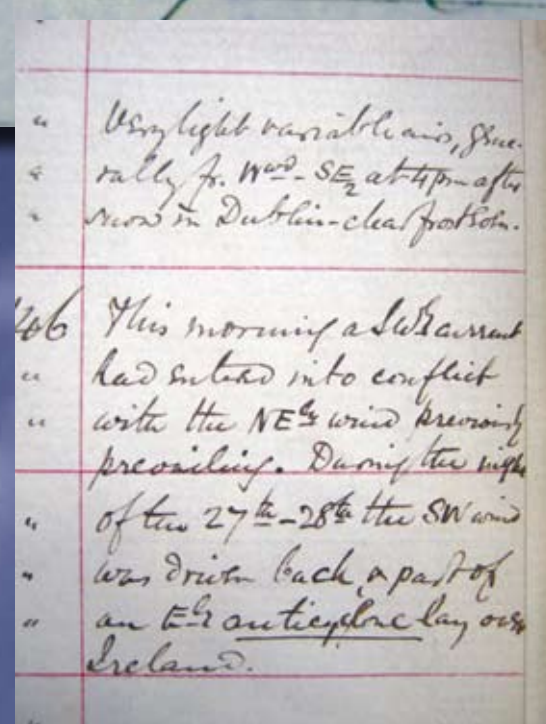 " Very light variable airs, gene-
" rally fr. Wwd - SE2 at 4 pm after
" snow in Dublin - clear frost
46 This morning a SWly current
" had entered into conflict
" with the NEly wind previously
prevailing. During the night
" of the 27th - 28th the SW wind
" was driven back, & part of
" an Ely anticyclone lay over
Ireland.